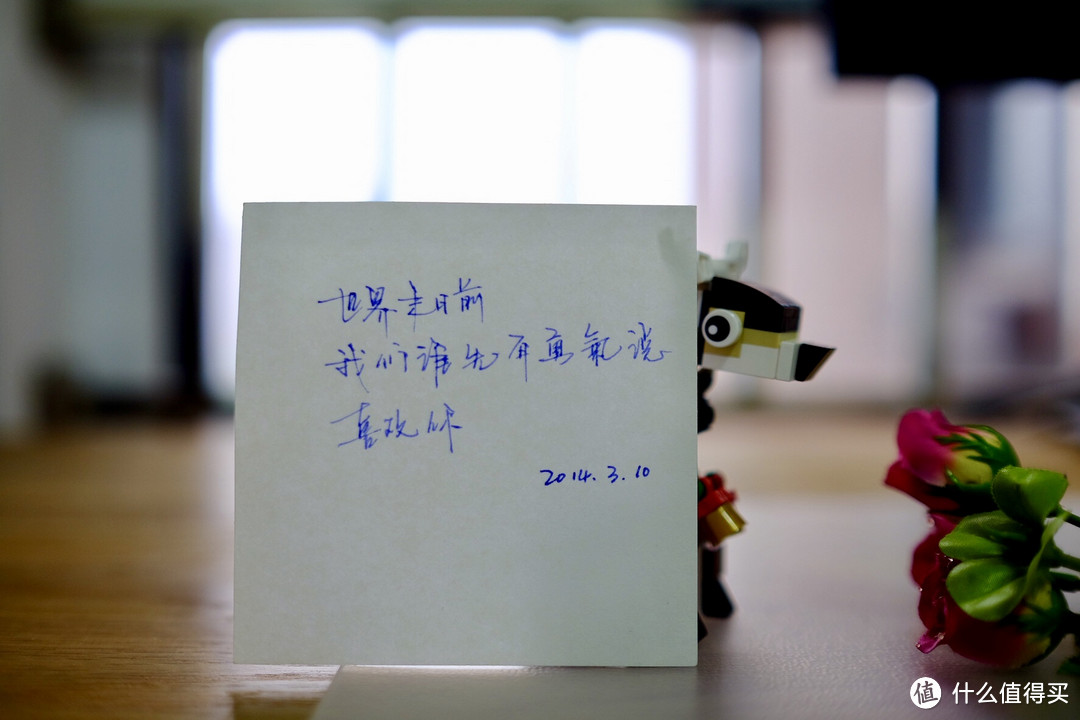 世界末日前
我们谁先有勇气说
喜欢你
2014.3.10
值 什么值得买